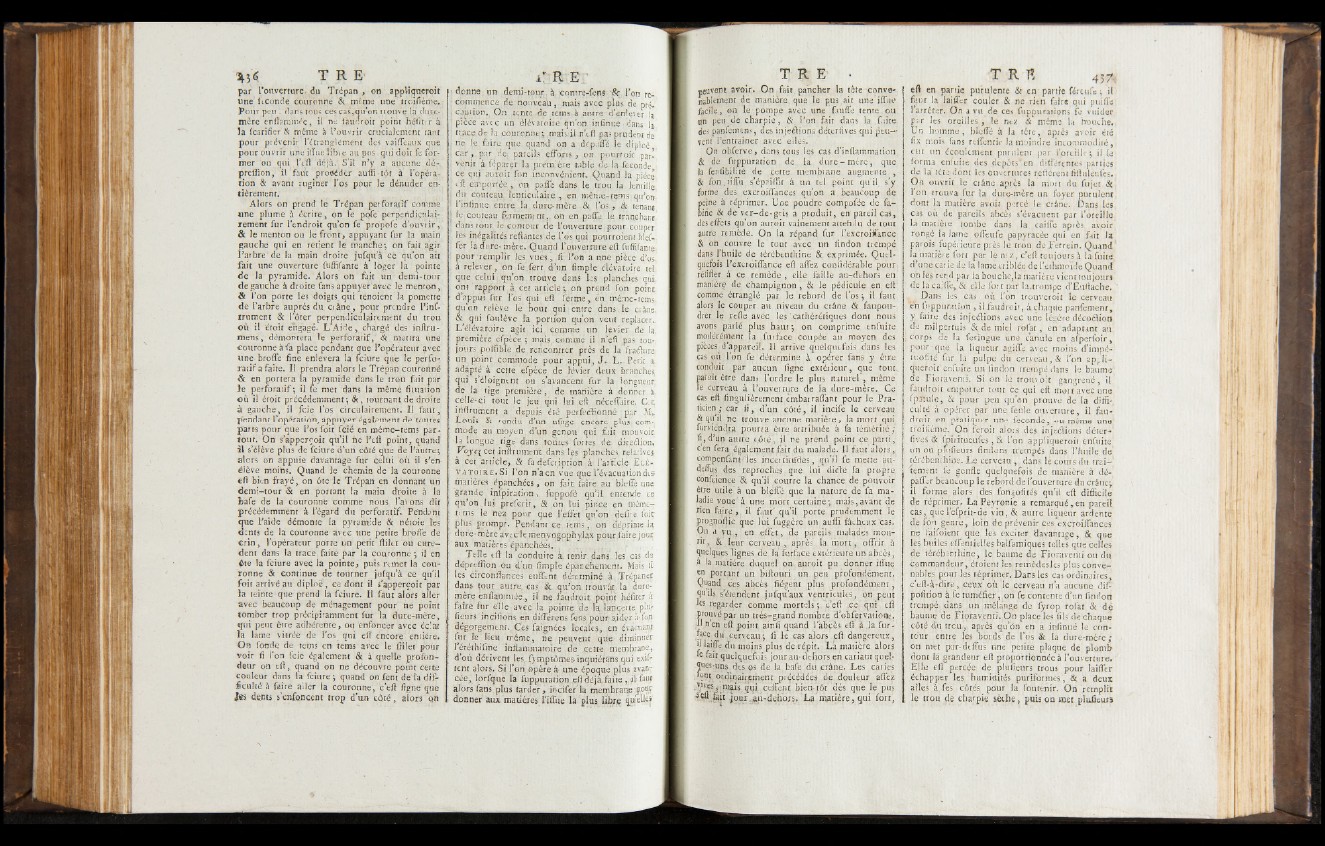 436 T R E
par l'ouverture du Trépan , on appliqueroit
une seconde couronne & même une troisième.
Pour peu dans tous ces cas, qu'on trouve la dure-
mère enflammée, il ne faudroit point hésiter à
la scarifier & même à l'ouvrir crucialement tant
pour prévenir l'étranglement des vaisseaux que
pour ouvrir une issue libre au pus qui doit se for-
mer ou qui l'est déjà. S'il n'y a aucune dé-
pression, il faut procéder aussi-tôt à l'opéra-
tion & avant ruginer l'os pour le dénuder en-
tièrement.
Alors on prend le Trépan perforatif comme
une plume à écrire, on le pose perpendiculai-
rement sur l'endroit qu'on se propose d'ouvrir,
& le menton ou le front, appuyant sur la main
gauche qui en retient le manche; on fait agir
l'arbre de la main droite jusqu'à ce qu'on ait
fait une ouverture suffisante à loger la pointe
de la pyramide. Alors on fait un demi-tour
de gauche à droite sans appuyer avec le menton,
& l'on porte les doigts qui tenoient la pomette
de l'arbre auprès du crâne, pour prendre l'ins-
trument & l'ôter perpendiculairement du trou
où il étoit engagé. L'Aide, chargé des instru-
mens, démontera le perforatif, & mettra une
couronne à sa place pendant que l'opérateur avec
une brosse fine enlevera la sciure que le perfo-
ratif a faite. Il prendra alors le Trépan couronné
& en portera la pyramide dans le trou fait par
le perforatif; il se met dans la même situation
où il étoit précédemment; &, tournant de droite
à gauche, il scie l'os circulairement. Il faut,
pendant l'opération, appuyer également de toutes
parts pour que l'os soit scié en même-tems par-
tout. On s'apperçoit qu'il ne l'est point, quand
il s'élève plus de sciure d'un côté que de l'autre;
alors on appuie davantage sur celui où il s'en
élève moins. Quand le chemin de la couronne
est bien frayé, on ôte le Trépan en donnant un
demi-tour & en portant la main droite à la
base de la couronne comme nous l'avons dit
précédemment à l'égard du perforatif. Pendant
que l'aide démonte la pyramide & nétoie les
dents de la couronne avec une petite brosse de
crin, l'opérateur porte un petit stilet ou cure-
dent dans la trace faite par la couronne; il en
ôte la sciure avec la pointe, puis remet la cou-
ronne & continue de tourner jusqu'à ce qu'il
soit arrivé au diploé, ce dont il s'apperçoit par
la teinte que prend la sciure. Il faut alors aller
avec beaucoup de ménagement pour ne point
tomber trop précipitamment sur la dure-mère,
qui peut être adhérente, ou enfoncer avec éclat
la lame vitrée de l'os qui est encore entière.
On sonde de tems en tems avec le stilet pour
voir si l'on scie également & à quelle profon-
deur on est, quand on ne découvre point cette
couleur dans la sciure; quand on sent de la dif-
ficulté à faire aller la couronne, c'est signe que
les dents s'enfoncent trop d'un côté, alors on
T R E
donne un demi-tour à contre-sens & l'on re-
commence de nouveau, mais avec plus de pré-
caution. On tente de tems à autre d'enlever la
pièce avec un élévatoire qu'on insinue dans la
trace de la couronne; mais il n'est pas prudent de
ne le faire que quand on a dépassé le diploé,
car, par de pareils efforts, on pourroit par-
venir à séparer la première table de la seconde,
ce qui auroit son inconvénient. Quand la pièce
est emportée, on passe dans le trou la lentille
du couteau lenticulaire, en même-tems qu'on
l'insinue entre la dure-mère & l'os, & tenant
le couteau fermement, on en passe le tranchant
dans tout le contour de l'ouverture pour couper
les inégalités restantes de l'os qui pourroient bles-
ser la dure-mère. Quand l'ouverture est suffisante
pour remplir les vues, si l'on a une pièce d'os
à relever, on se sert d'un simple élévatoire tel
que celui qu'on trouve dans les planches qui
ont rapport à cet article; on prend son point
d'appui sur l'os qui est ferme, en même-tems
qu'on relève le bout qui entre dans le crâne
& qui soulève la portion qu'on veut replacer.
L'élévatoire agit ici comme un levier de la
première espèce; mais comme il n'est pas tou-
jours possible de rencontrer près de la fracture
un point commode pour appui, J. L. Petit a
adapté à cette espèce de lévier deux branches
qui s'éloignent ou s'avancent sur la longueur
de la tige première, de manière à donner à
celle-ci tout le jeu qui lui est nécessaire. Cet
instrument a depuis été perfectionné par M.
Louis & rendu d'un usage encore plus com-
mode au moyen d'un genou qui fait mouvoir
la longue tige dans toutes sortes de direction.
Voyez cet instrument dans les planches relatives
à cet article, & sa description à l'article ELÉ-
VATOIRE. Si l'on n'a en vue que l'évacuation des
matières épanchées, on fait faire au blessé une
grande inspiration, supposé qu'il entende ce
qu'on lui prescrit, & on lui pince en même-
tems le nez pour que l'effet qu'on desire soit
plus prompt. Pendant ce tems, on déprime la
dure-mère avec le menyngophylax pour faire jour
aux matières épanchées.
Telle est la conduite à tenir dans les cas de
dépression ou d'un simple épanchement. Mais si
les circonstances eussent déterminé à Trépaner
dans tout autre cas & qu'on trouvât la dure-
mère enflammée, il ne faudroit point hésiter à
faire sur elle avec la pointe de la lancette plu-
sieurs incisions en différens sens pour aider à son
dégorgement. Ces saignées locales, en évacuant
sur le lieu même, ne peuvent que diminuer
l'éréthisme inflammatoire de cette membrane,
d'où dérivent les symptômes inquiétans qui exis-
tent alors. Si l'on opère à une époque plus avan-
cée, lorsque la suppuration est déjà faite, il faut
alors sans plus tarder, inciser la membrane pour
donner aux matières l'issue la plus libre qu'elles
T R E
peuvent avoir. On fait pancher la tête conve-
nablement de manière que le pus ait une issue
facile, on le pompe avec une fausse tente ou
un peu de charpie, & l'on fait dans la suite
des pansemens, des injections détersives qui peu-
vent l'entraîner avec elles.
On observe, dans tous les cas d'inflammation
& de suppuration de la dure-mère, que
la sensibilité de cette membrane augmente,
& son tissu s'épaissit à un tel point qu'il s'y
forme des excroissances qu'on a beaucoup de
peine à réprimer. Une poudre composée de sa-
bine & de ver-de-gris a produit, en pareil cas,
des effets qu'on auroit vainement attendu de tout
autre remède. On la répand sur l'excroissance
& on couvre le tout avec un sindon trempé
dans l'huile de térébenthine & exprimée. Quel-
quefois l'excroissance est assez considérable pour
résister à ce remède, elle saille au-dehors en
manière de champignon, & le pédicule en est
comme étranglé par le rebord de l'os; il faut
alors le couper au niveau du crâne & saupou-
drer le reste avec les cathérétiques dont nous
avons parlé plus haut; on comprime ensuite
modérément la surface coupée au moyen des
pièces d'appareil. Il arrive quelquefois dans les
cas où l'on se détermine à opérer sans y être
conduit par aucun signe extérieur, que tout
paroît être dans l'ordre le plus naturel, même
le cerveau à l'ouverture de la dure-mère. Ce
cas est singulièrement embarrassant pour le Pra-
ticien; car si, d'un côté, il incise le cerveau
& qu'il ne trouve aucune matière, la mort qui
surviendra pourra être attribuée à sa témérité;
si, d'un autre côté, il ne prend point ce parti,
c'en sera également fait du malade. Il faut alors,
compensant les incertitudes, qu'il se mette au-
dessus des reproches que lui dicte sa propre
conscience & qu'il courre la chance de pouvoir
être utile à un blessé que la nature de sa ma-
ladie voue à une mort certaine; mais, avant de
rien faire, il faut qu'il porte prudemment le
prognostic que lui suggère un aussi fâcheux cas.
On a vu, en effet, de pareils malades mou-
rir, & leur cerveau, après la mort, offrir à
quelques lignes de sa surface extérieure un abcès,
à la matière duquel on auroit pu donner issue
en portant un bistouri un peu profondement.
Quand ces abcès siégent plus profondément,
qu'ils s'étendent jusqu'aux ventricules, on peut
les regarder comme mortels; c'est ce qui est
prouvé par un très-grand nombre d'observations.
Il n'en est point ainsi quand l'abcès est à la sur-
face du cerveau; si le cas alors est dangereux,
il laisse du moins plus de répit. La matière alors
se fait quelquefois jour au-dehors en cariant quel-
ques-uns des os de la base du crâne. Les caries
sont ordinairement précédées de douleur assez
vives, mais qui cessent bien-tôt dès que le pus
s'est fait jour au-dehors. La matière, qui sort,
T R E 437
est en partie purulente & en partie séreuse; il
faut la laisser couler & ne rien faire qui puisse
l'arrêter. On a vu de ces suppurations se vuider
par les oreilles, le nez & même la bouche.
Un homme, blessé à la tête, après avoir été
six mois sans ressentir la moindre incommodité,
eut un écoulement purulent par l'oreille; il se
forma ensuite des dépôts en différentes parties
de la tête dont les ouvertures restèrent fistuleuses.
On ouvrit le crâne après la mort du sujet &
l'on trouva sur la dure-mère un foyer purulent
dont la matière avoit percé le crâne. Dans les
cas où de pareils abcès s'évacuent par l'oreille
la matière tombe dans la caisse après avoir
rongé la lame osseuse papyracée qui en fait la
parois supérieure près le trou de Ferrein. Quand
la matière sort par le nez, c'est toujours à la suite
d'une carie de la lame criblée de l'ethmoïde. Quand
on les rend par la bouche, la matière vient toujours
de la caisse, & elle sort par la trompe d'Eustache.
Dans les cas où l'on trouveroit le cerveau
en suppuration, il faudroit, à chaque pansement,
y faire des injections avec une légère décoction
de milpertuis & de miel rosat, en adaptant au
corps de la seringue une canule en arrosoir,
pour que la liqueur agisse avec moins d'immé-
diateté sur la pulpe du cerveau, & l'on appli-
queroit ensuite un sindon trempé dans le baume
de Fioraventi. Si on le trouvoit gangrené, il
faudroit emporter tout ce qui est mort avec une
spatule, & pour peu qu'on trouve de la diffi-
culté à opérer par une seule ouverture, il fau-
droit en pratiquer une seconde, ou même une
troisième. On feroit alors des injections déter-
sives & spiritueuses, & l'on appliqueroit ensuite
un ou plusieurs sindons trempés dans l'huile de
térébenthine. Le cerveau, dans le cours du trai-
tement se gonfle quelquefois de manière à dé-
passer beaucoup le rebord de l'ouverture du crâne;
il forme alors des fongosités qu'il est difficile
de réprimer. La Peyronie a remarqué, en pareil
cas, que l'esprit-de vin, & autre liqueur ardente
de son genre, loin de prévenir ces excroissances
ne faisoient que les exciter davantage, & que
les huiles essentielles balsamiques telles que celles
de térébenthine, le baume de Fioraventi ou du
commandeur, étoient les remèdes les plus conve-
nables pour les réprimer. Dans les cas ordinaires,
c'est-à-dire, ceux où le cerveau n'a aucune dis-
position à se tuméfier, on se contente d'un sindon
trempé dans un mélange de syrop rosat & de
baume de Fioraventi. On place les fils de chaque
côté du trou, après qu'on en a insinué le con-
tour entre les bords de l'os & la dure-mère;
on met par-dessus une petite plaque de plomb
dont la grandeur est proportionnée à l'ouverture.
Elle est percée de plusieurs trous pour laisser
échapper les humidités puriformes, & a deux
ailes à ses côtés pour la soutenir. On remplit
le trou de charpie sèche, puis on met plusieurs